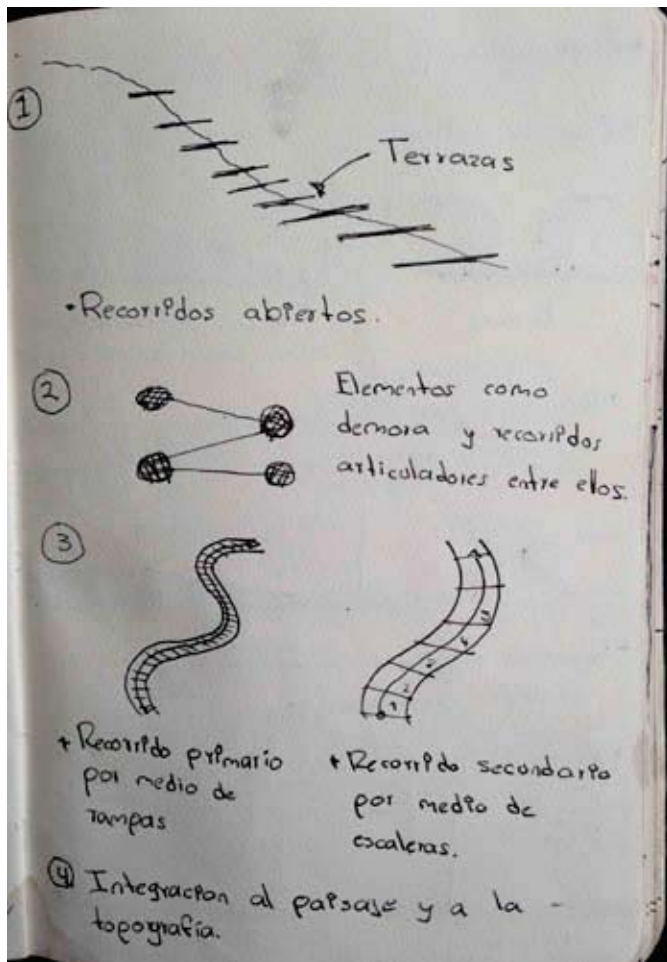 1
Terrazas
•Recorridos abiertos.
2
Elementos como
demora y recorridos
articuladores entre ellos.
3
+ Recorrido primario
por medio de
rampas
+ Recorrido secundario
por medio de
escaleras.
4 Integracion al paisaje y a la -
topografía.